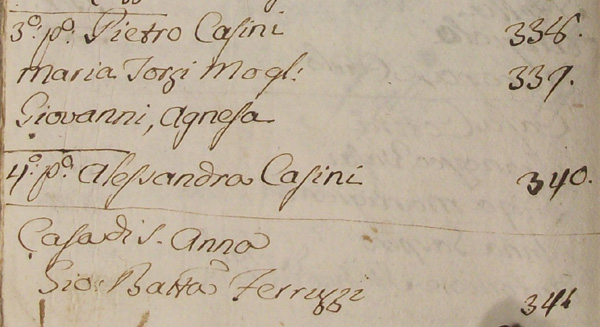 3.º p.º Pietro Casini 338.
Maria Torzi Mogl: 339.
Giovanni, Agnesa
4.º p.º Alessandra Casini 340.
Casa di S. Anna
Gio: Batta Ferruzzi 341